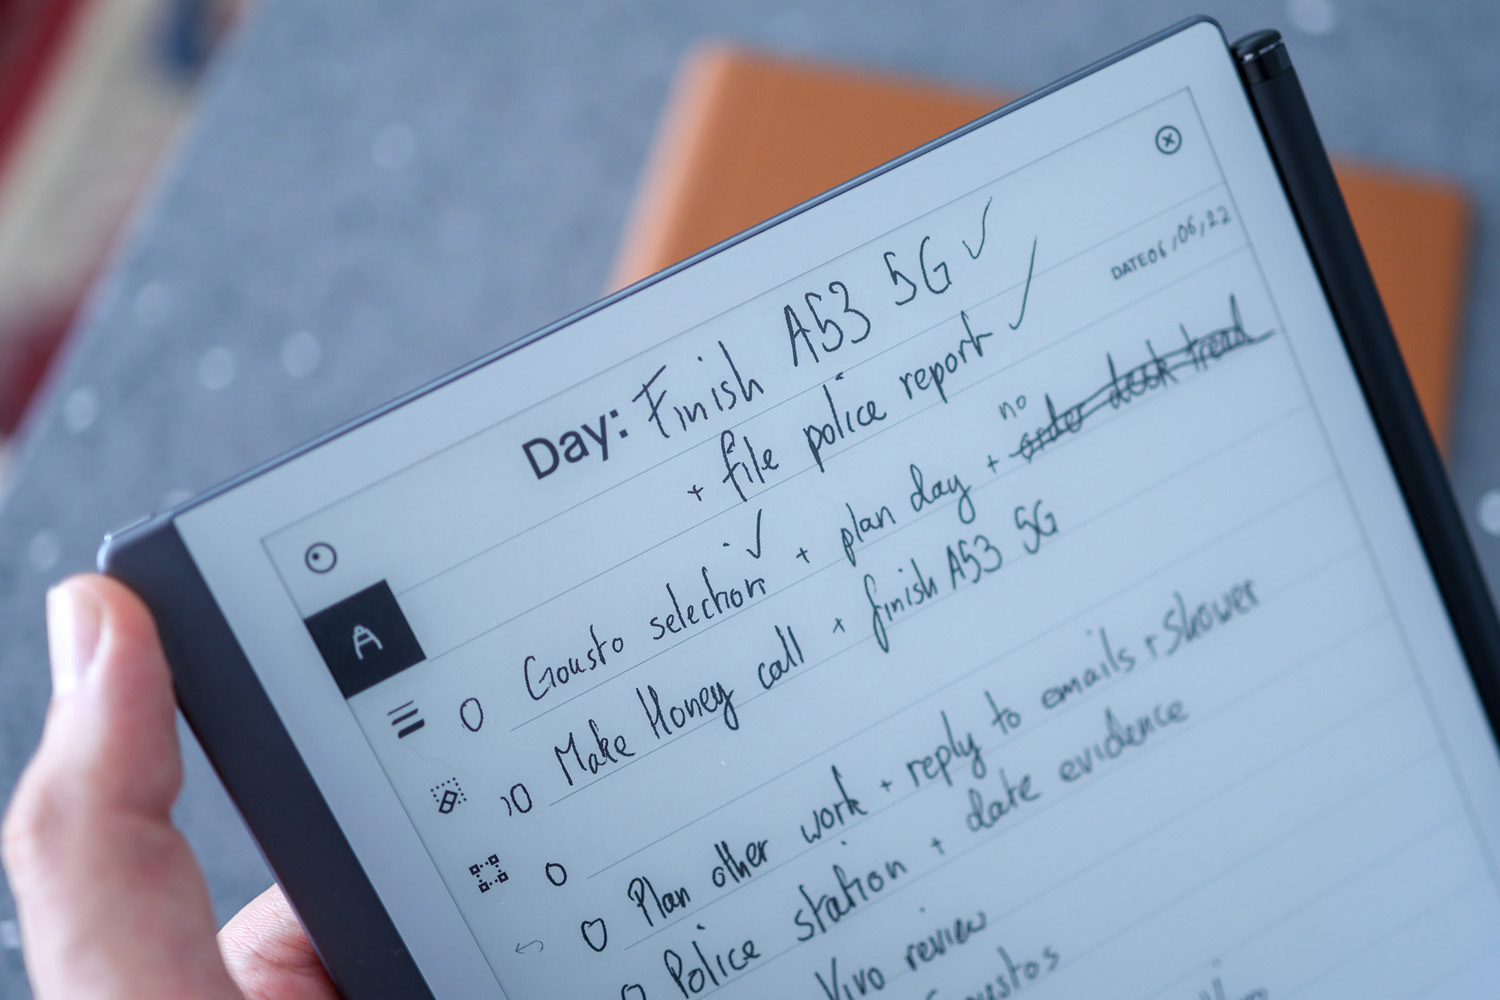 Day: Finish A53 5G ✓
DATE 06/06/22
+ file police report ✓
Gousto selection ✓ + plan day + no order desk tread
Make Honey call + finish A53 5G
Plan other work + reply to emails + Shower
Police station + date evidence
Vivo review
Goustos